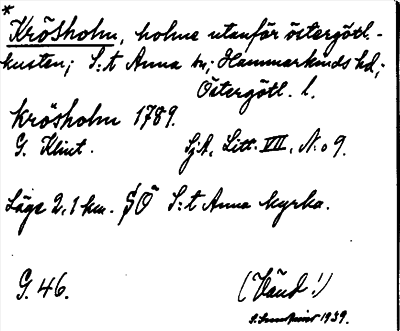 *
Krösholm, holme utanför östergötl.-
kusten; S:t Anna sn; Hammarkinds hd;
Östergötl. l.
Krösholm 1789.
G. Klint. Sjk. Litt. VII, No 9.
Läge 2,1 km. SÖ S:t Anna kyrka.
G. 46. (Vänd!)
1939.